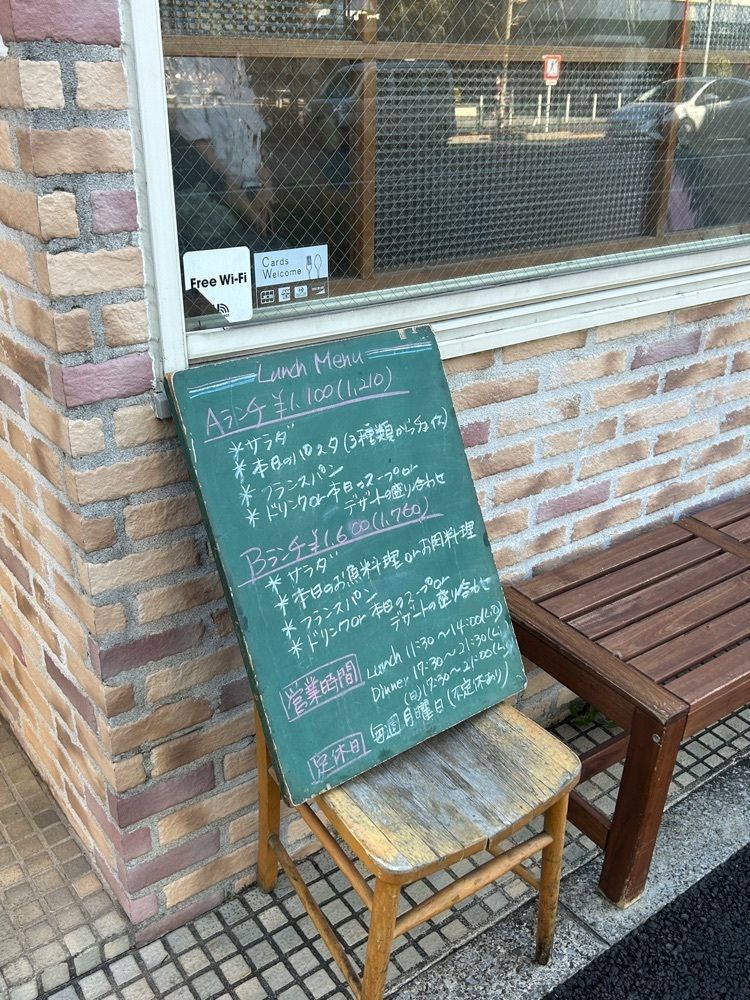 Free Wi-Fi
Cards
Welcome
JCB
Lunch Menu
Aランチ ¥1,100(1,210)
*サラダ
*本日のパスタ(3種類からチョイス)
*フランスパン
*ドリンクor本日のスープor
デザートの盛り合わせ
Bランチ¥1,600(1,760)
*サラダ
*本日のお魚料理orお肉料理
*フランスパン
*ドリンクor本日のスープor
デザートの盛り合わせ
営業時間
Lunch 11:30〜14:00(L.O)
Dinner 17:30〜21:30(L.O)
(日)17:30〜21:00(L.O)
定休日
毎週月曜日(不定休あり)